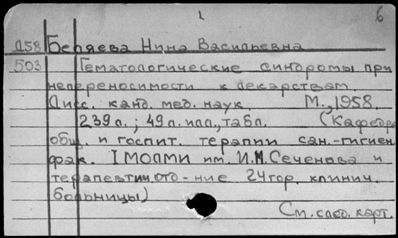 1 6
Д58 Беляева Нина Васильевна
503 Гематологические синдромы при
непереносимости к лекарствам.
Дисс. канд. мед. наук. М., 1958.
239л.; 49л. илл., табл. (Кафедра
общ. и госпит. терапии сан.-гигиен.
фак. I МОЛМИ им. И.М. Сеченова и
терапевтич. отд-ние 24 гор. клинич.
больницы)
См. след. карт.